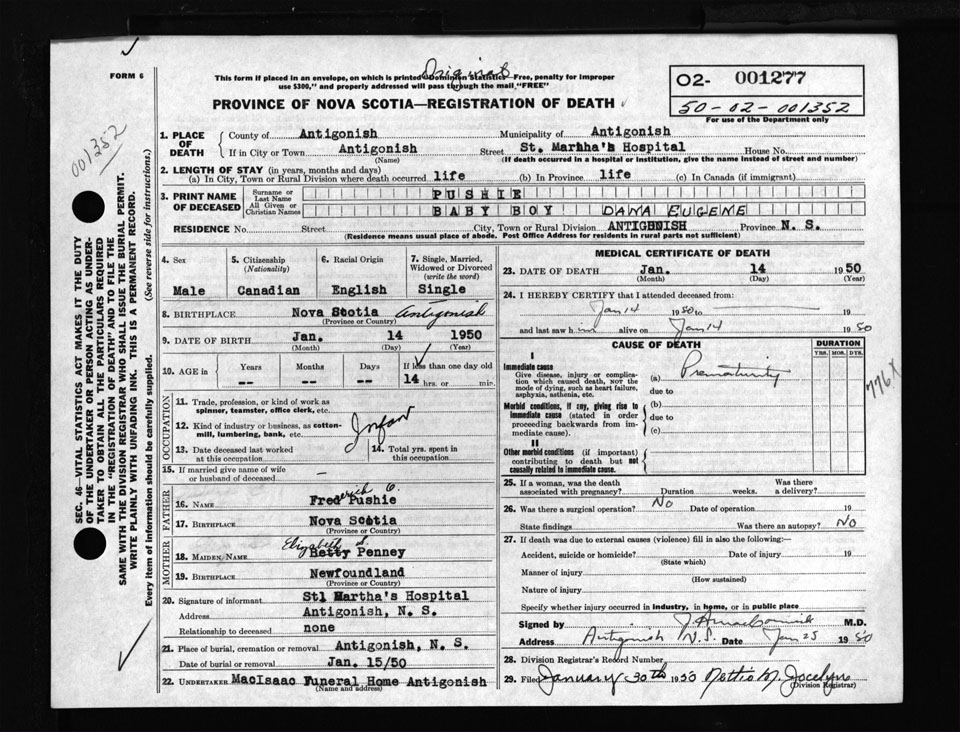 FORM 6
Original
This form if placed in an envelope, on which is printed "Dominion Statistics—Free, penalty for improper
use $300," and properly addressed will pass through the mail "FREE"
O2- 001277
50-02-001352
For use of the Department only
PROVINCE OF NOVA SCOTIA—REGISTRATION OF DEATH
001352
1. PLACE OF DEATH
County of Antigonish Municipality of Antigonish
If in City or Town Antigonish Street St. Martha's Hospital House No.
(Name) (If death occurred in a hospital or institution, give the name instead of street and number)
2. LENGTH OF STAY (in years, months and days)
(a) In City, Town or Rural Division where death occurred life (b) In Province life (c) In Canada (if immigrant)
3. PRINT NAME OF DECEASED
Surname or Last Name PUSHIE
All Given or Christian Names BABY BOY DANA EUGENE
RESIDENCE No. Street City, Town or Rural Division ANTIGONISH Province N. S.
(Residence means usual place of abode. Post Office Address for residents in rural parts not sufficient)
4. Sex 5. Citizenship (Nationality) 6. Racial Origin 7. Single, Married, Widowed or Divorced (write the word)
Male Canadian English Single
8. BIRTHPLACE Nova Scotia Antigonish
(Province or Country)
9. DATE OF BIRTH Jan. 14 1950
(Month) (Day) (Year)
10. AGE in Years Months Days If less than one day old
-- -- -- 14 hrs. or min.
OCCUPATION
11. Trade, profession, or kind of work as
spinner, teamster, office clerk, etc.
12. Kind of industry or business, as cotton-
mill, lumbering, bank, etc.
Infant
13. Date deceased last worked at this occupation
14. Total yrs. spent in this occupation
15. If married give name of wife
or husband of deceased —
FATHER
16. NAME Frederick G. Pushie
17. BIRTHPLACE Nova Scotia
(Province or Country)
MOTHER
18. MAIDEN NAME Elizabeth S. Betty Penney
19. BIRTHPLACE Newfoundland
(Province or Country)
20. Signature of informant Stl Martha's Hospital
Address Antigonish, N. S.
Relationship to deceased none
21. Place of burial, cremation or removal Antigonish, N. S.
Date of burial or removal Jan. 15/50
22. UNDERTAKER MacIsaac Funeral Home Antigonish
(Name and address)
MEDICAL CERTIFICATE OF DEATH
23. DATE OF DEATH Jan. 14 1950
(Month) (Day) (Year)
24. I HEREBY CERTIFY that I attended deceased from:
Jan 14 1950 to 19
and last saw him alive on Jan 14 1950
CAUSE OF DEATH DURATION
YRS. MOS. DYS.
I
Immediate cause
Give disease, injury or complica-
tion which caused death, NOT the
mode of dying, such as heart failure,
asphyxia, asthenia, etc.
(a) Prematurity
due to
776X
Morbid conditions, if any, giving rise to
immediate cause (stated in order
proceeding backwards from im-
mediate cause).
(b)
due to
(c)
II
Other morbid conditions (if important)
contributing to death but not
causally related to immediate cause.
25. If a woman, was the death
associated with pregnancy? Duration weeks. Was there a delivery?
26. Was there a surgical operation? No Date of operation 19
State findings Was there an autopsy? No
27. If death was due to external causes (violence) fill in also the following:—
Accident, suicide or homicide? Date of injury 19
(State which)
Manner of injury
(How sustained)
Nature of injury
Specify whether injury occurred in industry, in home, or in public place
Signed by M.D.
Address Antigonish N.S. Date Jan 25 1950
28. Division Registrar's Record Number
29. Filed January 30th 1950 Nettie M. Jocelyn
(Division Registrar)
SEC. 46—VITAL STATISTICS ACT MAKES IT THE DUTY
OF THE UNDERTAKER OR PERSON ACTING AS UNDER-
TAKER TO OBTAIN ALL THE PARTICULARS REQUIRED
IN THE "REGISTRATION OF DEATH" AND TO FILE THE
SAME WITH THE DIVISION REGISTRAR WHO SHALL ISSUE THE BURIAL PERMIT.
WRITE PLAINLY WITH UNFADING INK. THIS IS A PERMANENT RECORD.
Every item of information should be carefully supplied. (See reverse side for instructions.)